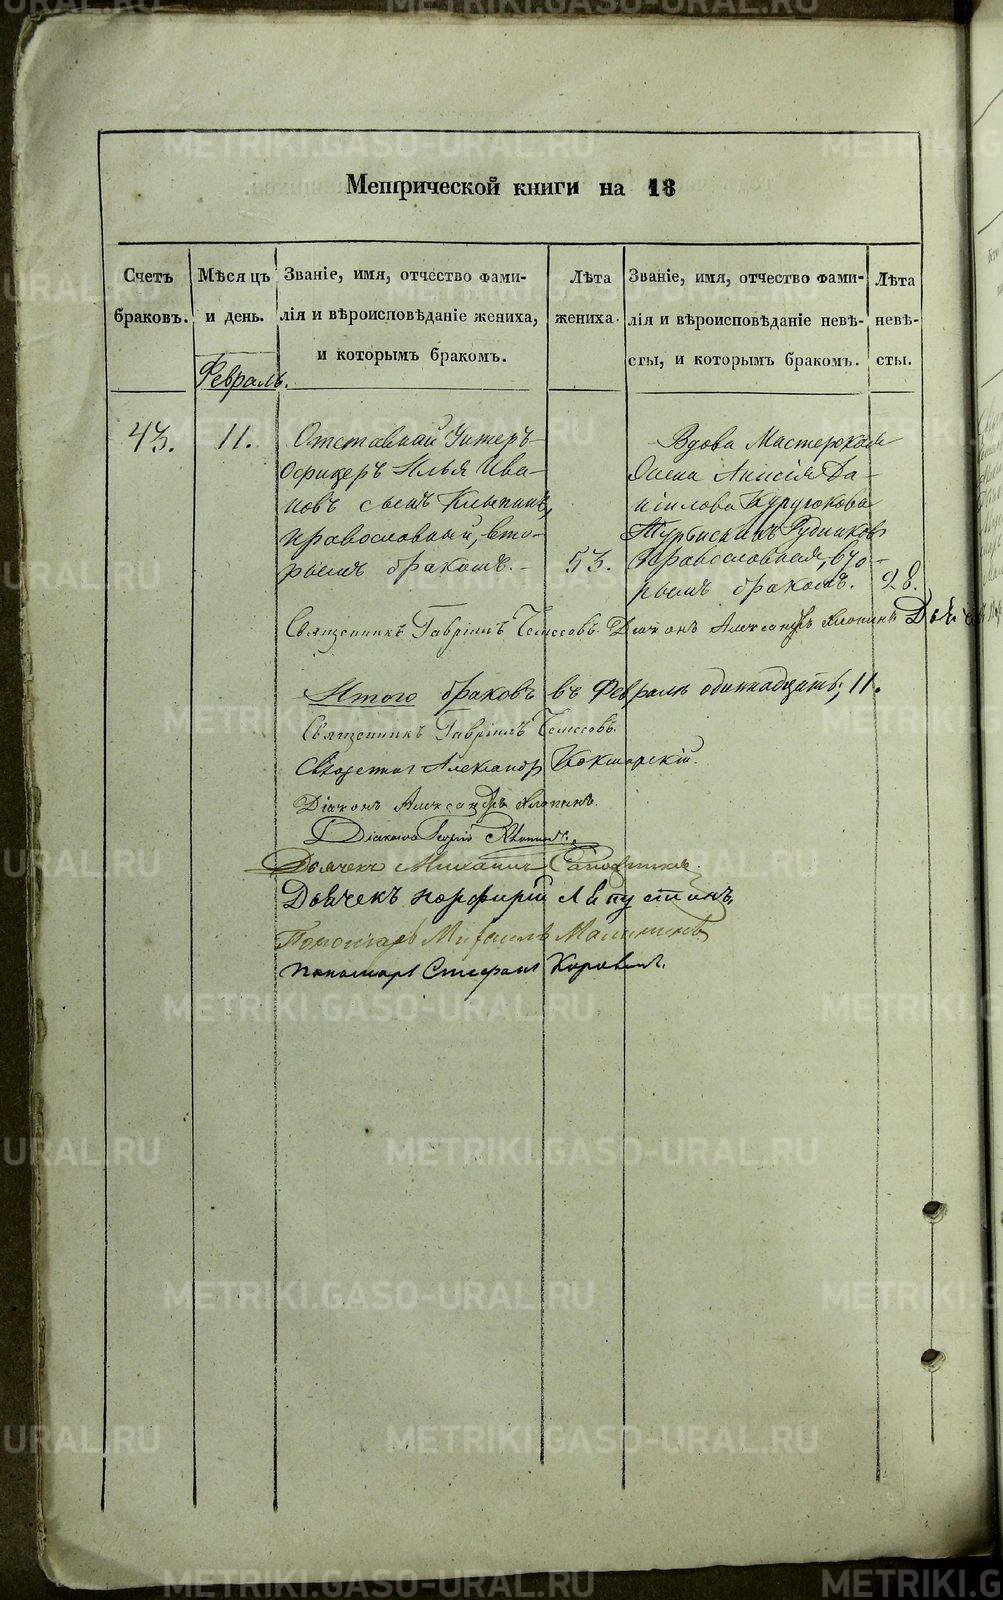 Метрической книги на 18
Счетъ браковъ.
Мѣсяцъ и день.
Званіе, имя, отчество фами-
лія и вѣроисповѣданіе жениха,
и которымъ бракомъ.
Лѣта жениха.
Званіе, имя, отчество фами-
лія и вѣроисповѣданіе невѣ-
сты, и которымъ бракомъ.
Лѣта невѣ-
сты.
Февраль.
43. 11.
Отставной Унтеръ-
Офицеръ Илья Ива-
новъ сынъ
православный, вто-
рымъ бракомъ.-
53.
Вдова Мастерская
Анисія Да-
нилова
Рудников
православная, вто-
рымъ бракомъ.
28.
Священникъ Гавріилъ Діаконъ Александръ Хлопинъ
Итого браковъ въ Февралѣ одиннадцать, 11.
Священникъ Гавріилъ
Священник Александр
Діаконъ Александръ Хлопинъ.
Діаконъ Георгій
Дьячекъ Михаилъ Сапожников
Дьячекъ Порфирій Липустинъ
Пономарь Михаилъ Малининъ
Пономарь Стефанъ Коровин.
METRIKI.GASO-URAL.RU